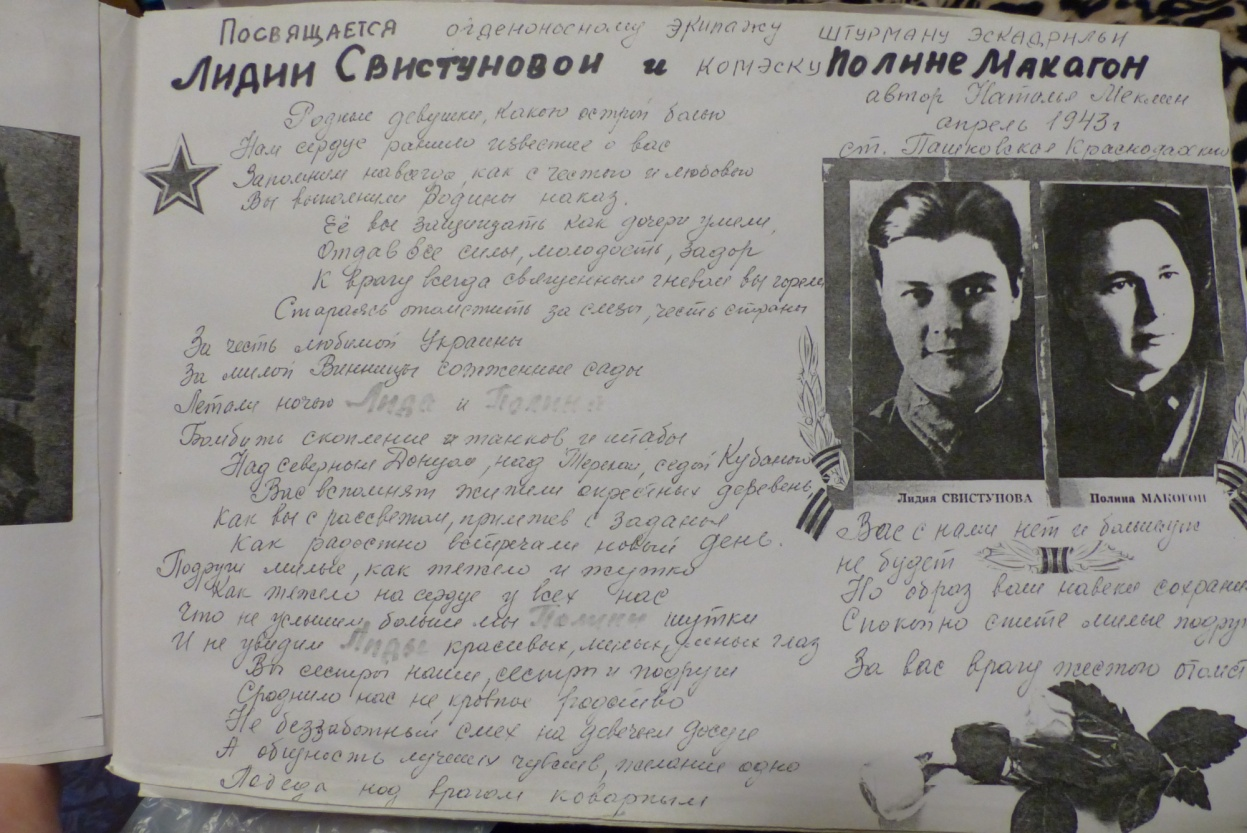 Посвящается орденоносному экипажу штурману эскадрильи
Лидии Свистуновой и комэску Полине Макагон
автор Наталья Меклин
апрель 1943г
ст. Пашковская Краснодарского
Родные девушки, какою острой болью
Нам сердце ранило известие о вас
Запомним навсегда, как с честью и любовью
Вы выполнили Родины наказ.
Её вы защищать как дочери умели,
Отдав все силы, молодость, задор
К врагу всегда священным гневом вы горели
Стараясь отомстить за слезы, честь страны
За честь любимой Украины
За милой Винницы сожженные сады
Летали ночью Лида и Полина
Бомбить скопление и танков и штабы
Над северным Донцом, над Тереком, седой Кубанью
Вас вспомнят жители окрестных деревень,
Как вы с рассветом, прилетев с заданья
Как радостно встречали новый день.
Подруги милые, как тяжело и жутко
Как тяжело на сердце у всех нас
Что не услышим больше мы Полины шутки
И не увидим Лиды красивых, милых, умных глаз
Вы сестры наши, сестры и подруги
Сроднило нас не кровное родство
Не беззаботный смех на досуге
А общность лучших чувств, желание одно
Победа над врагом коварным
Лидия СВИСТУНОВА
Полина МАКОГОН
Вас с нами нет и больше уж
не будет
Но образ ваш навеки сохраним
Спокойно спите милые подруги
За вас врагу жестоко отомст